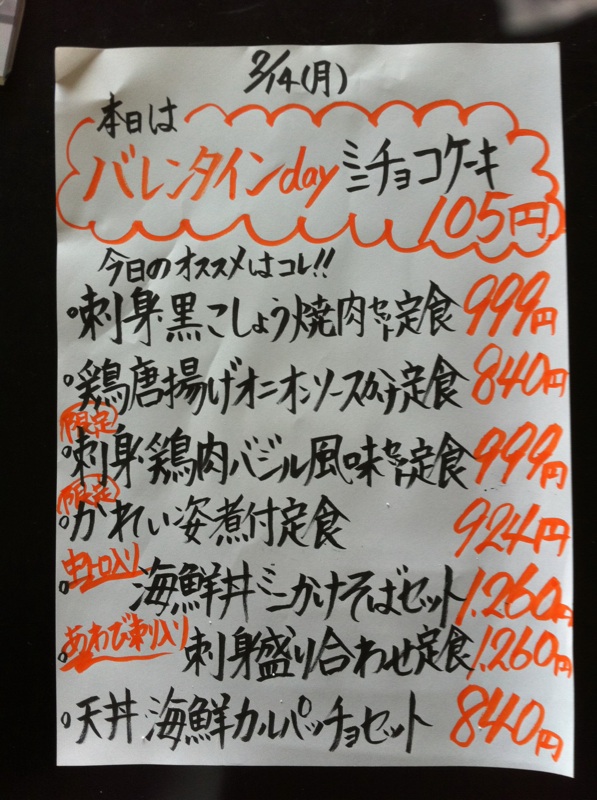 2/14(月)
本日は
バレンタインday ミニチョコケーキ
105円
今日のオススメはコレ!!
○刺身・黒こしょう焼肉セット定食 999円
○鶏唐揚げオニオンソースかけ定食 840円
限定
○刺身・鶏肉バジル風味セット定食 999円
限定
○かれい姿煮付定食 924円
中トロ入り
○海鮮丼・ミニかけそばセット 1,260円
あわび刺入り
○刺身盛り合わせ定食 1,260円
○天丼・海鮮カルパッチョセット 840円